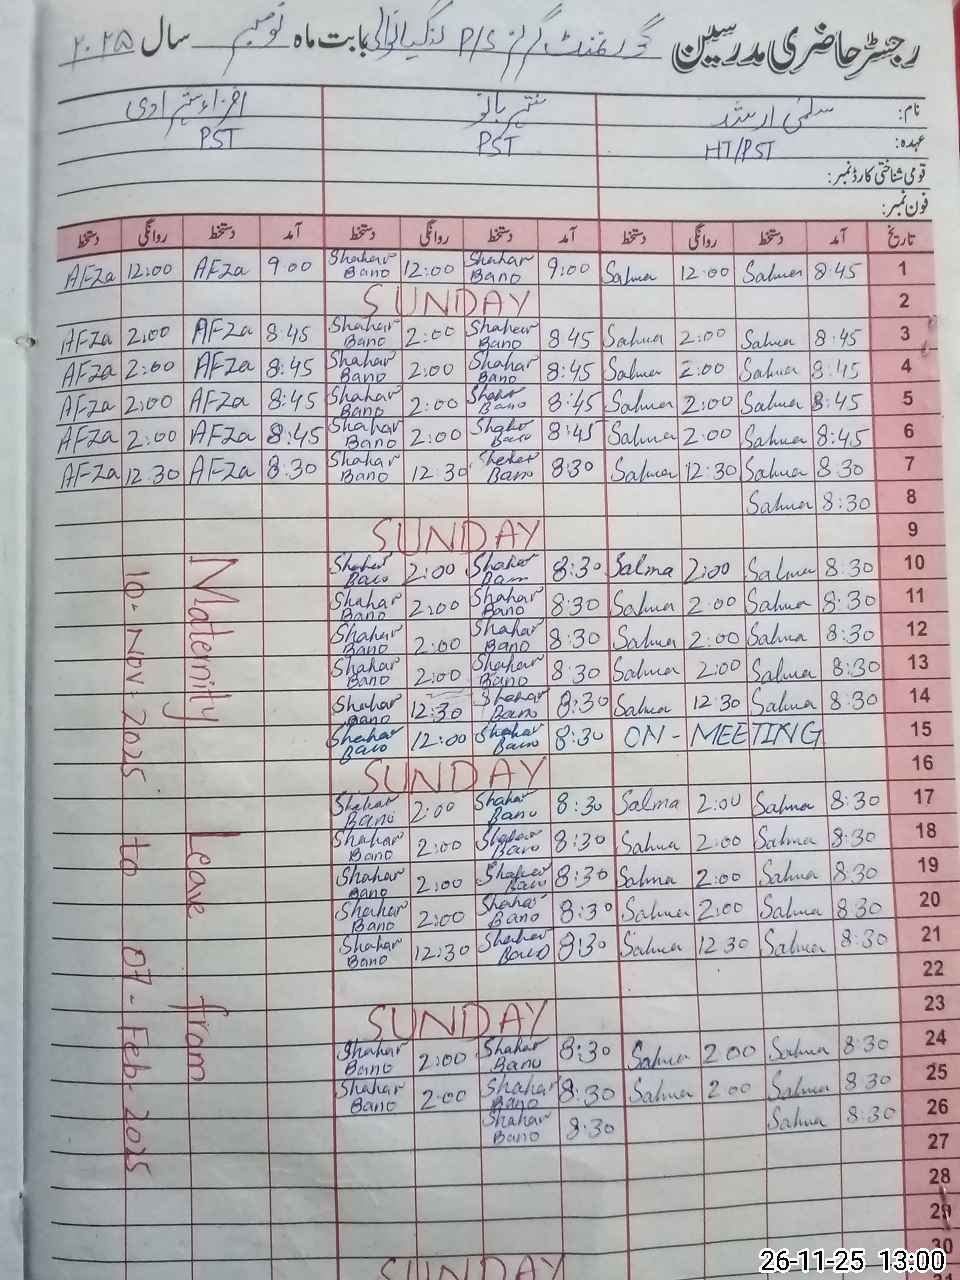 رجسٹر حاضری مدرسین گورنمنٹ گرلز P/S بابت ماہ نومبر سال ۲۰۲۵
نام: سلمیٰ ارشد
عہدہ: HT/PST PST PST
قومی شناختی کارڈ نمبر:
فون نمبر:
تاریخ آمد دستخط روانگی دستخط آمد دستخط روانگی دستخط آمد دستخط روانگی دستخط
1 8:45 Salma 12:00 Salma 9:00 Shahar Bano 12:00 Shahar Bano 9:00 AFZa 12:00 AFZa
2 SUNDAY
3 8:45 Salma 2:00 Salma 8:45 Shahar Bano 2:00 Shahar Bano 8:45 AFZa 2:00 AFZa
4 8:45 Salma 2:00 Salma 8:45 Shahar Bano 2:00 Shahar Bano 8:45 AFZa 2:00 AFZa
5 8:45 Salma 2:00 Salma 8:45 Shahar Bano 2:00 Shahar Bano 8:45 AFZa 2:00 AFZa
6 8:45 Salma 2:00 Salma 8:45 Shahar Bano 2:00 Shahar Bano 8:45 AFZa 2:00 AFZa
7 8:30 Salma 12:30 Salma 8:30 Shahar Bano 12:30 Shahar Bano 8:30 AFZa 12:30 AFZa
8 8:30 Salma
9 SUNDAY
10 8:30 Salma 2:00 Salma 8:30 Shahar Bano 2:00 Shahar Bano
11 8:30 Salma 2:00 Salma 8:30 Shahar Bano 2:00 Shahar Bano
12 8:30 Salma 2:00 Salma 8:30 Shahar Bano 2:00 Shahar Bano
13 8:30 Salma 2:00 Salma 8:30 Shahar Bano 2:00 Shahar Bano
14 8:30 Salma 12:30 Salma 8:30 Shahar Bano 12:30 Shahar Bano
15 ON - MEETING 8:30 Shahar Bano 12:00 Shahar Bano
16 SUNDAY
17 8:30 Salma 2:00 Salma 8:30 Shahar Bano 2:00 Shahar Bano
18 8:30 Salma 2:00 Salma 8:30 Shahar Bano 2:00 Shahar Bano
19 8:30 Salma 2:00 Salma 8:30 Shahar Bano 2:00 Shahar Bano
20 8:30 Salma 2:00 Salma 8:30 Shahar Bano 2:00 Shahar Bano
21 8:30 Salma 12:30 Salma 8:30 Shahar Bano 12:30 Shahar Bano
22
23 SUNDAY
24 8:30 Salma 2:00 Salma 8:30 Shahar Bano 2:00 Shahar Bano
25 8:30 Salma 2:00 Salma 8:30 Shahar Bano 2:00 Shahar Bano
26 8:30 Salma 8:30 Shahar Bano
27
28
29
30 SUNDAY
31
Maternity Leave from
10-Nov-2025 to 07-Feb-2025
26-11-25 13:00